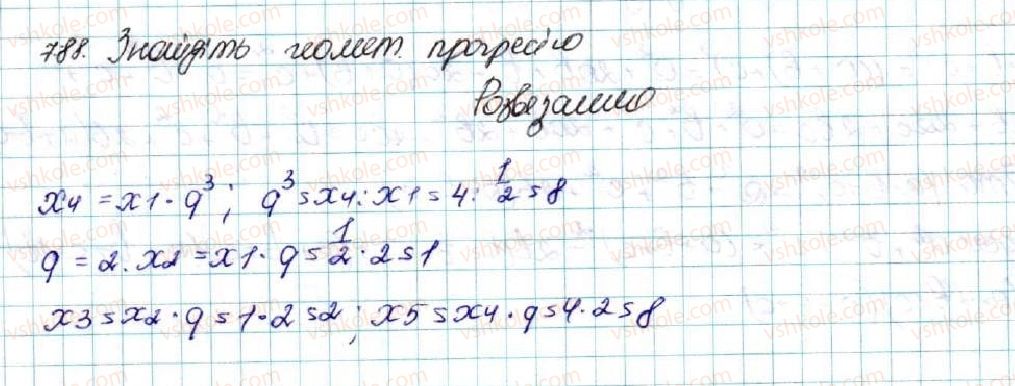 788. Знайдіть геомет. прогресію
Розвязання
x4 = x1 · q³; q³ = x4 : x1 = 4 : 1/2 = 8
q = 2. x2 = x1 · q = 1/2 · 2 = 1
x3 = x2 · q = 1 · 2 = 2; x5 = x4 · q = 4 · 2 = 8